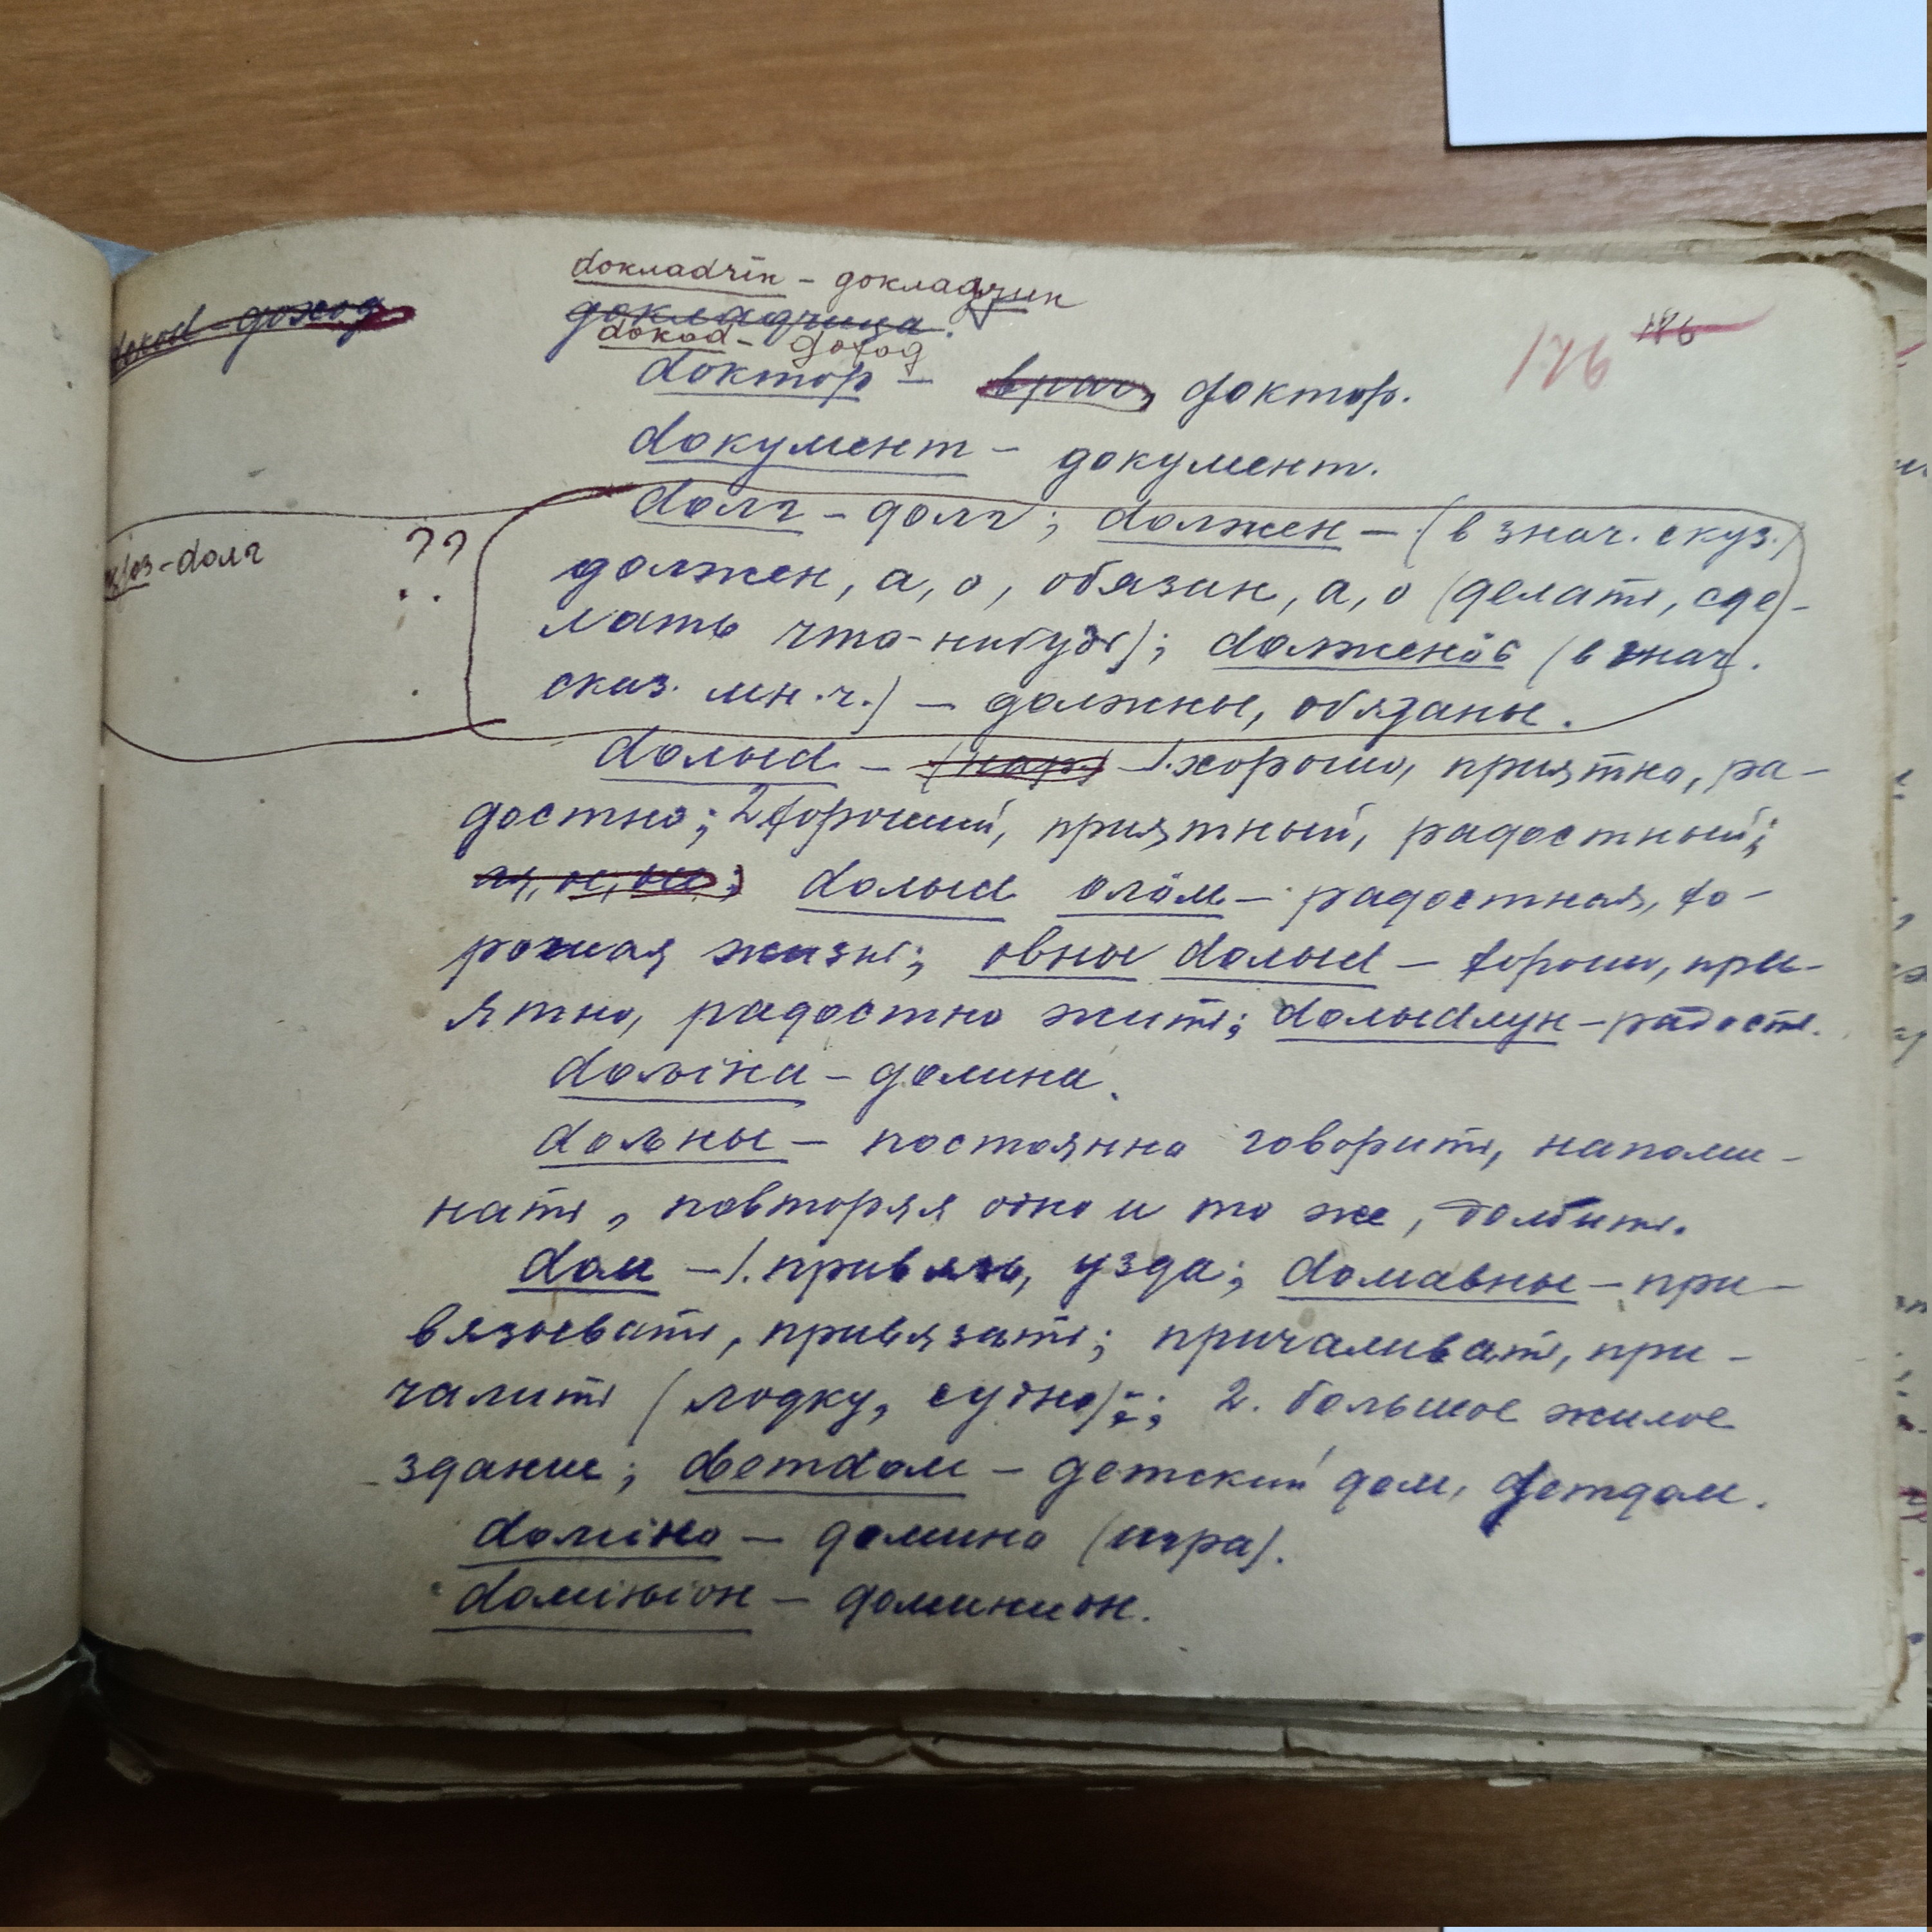 докладчік – докладчик
докладчица.
докод – доход
докод – доход
176 186
доктор – врач, доктор.
документ – документ.
долг – долг; должен – (в знач. сказ.)
– долг ??
должен, а, о, обязан, а, о (делать, сде-
лать что-нибудь); должен
 (в знач.
сказ. мн.ч.) – должны, обязаны.
долыд – (нар.) – 1. хорошо, приятно, ра-
достно; 2. хороший, приятный, радостный;
долыд олӧм – радостная, хо-
рошая жизнь; овны долыд – хорошо, при-
ятно, радостно жить; долыдлун – радость.
доліна – долина.
дольны – постоянно говорить, напоми-
нать, повторяя одно и то же, долбить.
дом – 1. привязь, узда; домавны – при-
вязывать, привязать; причаливать, при-
чалить (лодку, судно); 2. большое жилое
здание; детдом – детский дом, детдом.
доміно – домино (игра).
домініон – доминион.